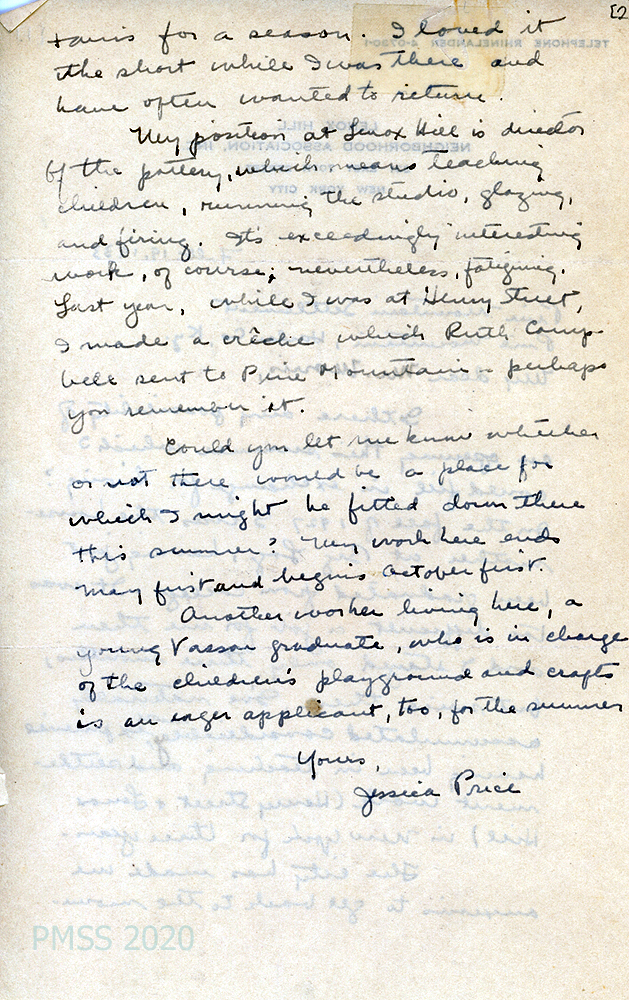 [2
tains for a season. I loved it
the short while I was there and
have often wanted to return.
My position at Lenox Hill is director
of the pottery, which means teaching
children, running the studio, glazing,
and firing. It's exceedingly interesting
work, of course; nevertheless, fatiguing.
Last year, while I was at Henry Street,
I made a crêche which Ruth Camp-
bell sent to Pine Mountain - perhaps
you remember it.
Could you let me know whether
or not there would be a place for
which I might be fitted down there
this summer? My work here ends
May first and begins October first.
Another worker living here, a
young Vassar graduate, who is in charge
of the children's playground and crafts
is an eager applicant, too, for the summer
Yours,
Jessica Price
PMSS 2020